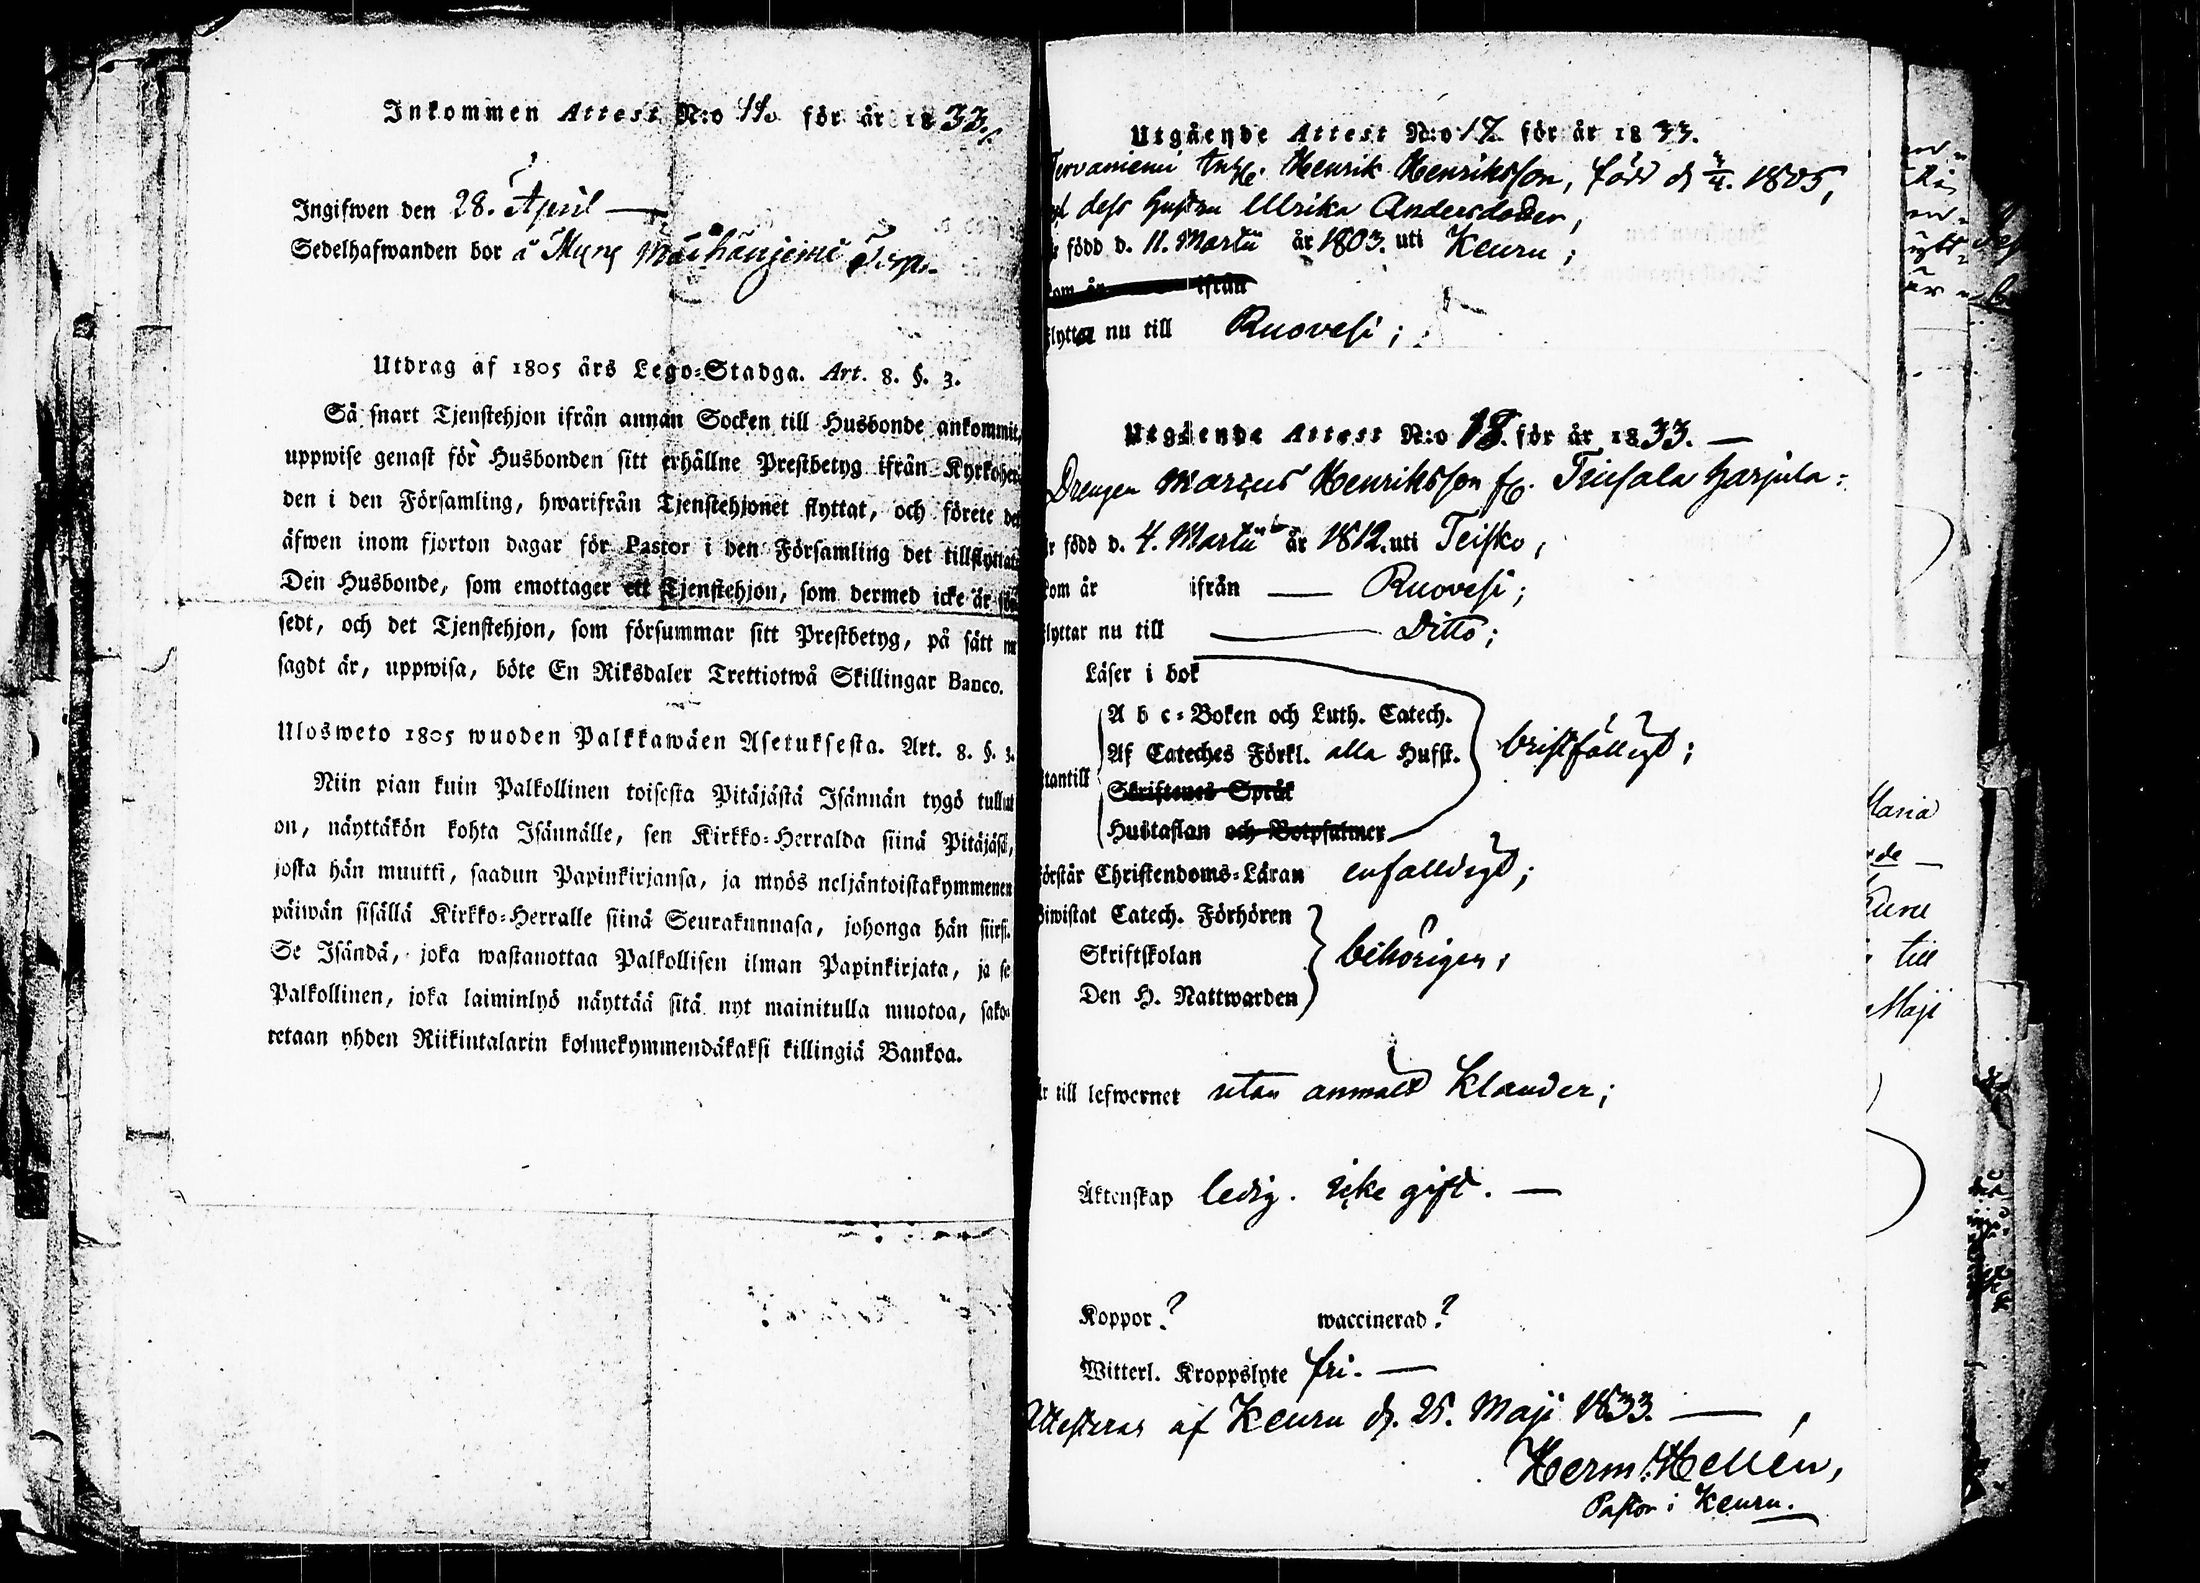 Inkommen Attest N:o 40 för år 1833.
Ingifwen den 28. April
Sedelhafwanden bor å
Utdrag af 1805 års Lego-Stadga. Art. 8. §. 3.
Så snart Tjenstehjon ifrån annan Socken till Husbonde ankommit,
uppwise genast för Husbonden sitt erhållne Prestbetyg ifrån Kyrkoher-
den i den Församling, hwarifrån Tjenstehjonet flyttat, och förete det
äfwen inom fjorton dagar för Pastor i den Församling det tillflyttat.
Den Husbonde, som emottager ett Tjenstehjon, som dermed icke är
sedt, och det Tjenstehjon, som försummar sitt Prestbetyg, på sätt nu
sagdt är, uppwisa, böte En Riksdaler Trettiotwå Skillingar Banco.
Ulosweto 1805 wuoden Palkkawäen Asetuksesta. Art. 8. §. 3.
Niin pian kuin Palkollinen toisesta Pitäjästä Isännän tygö tullut
on, näyttäkön kohta Isännälle, sen Kirkko-Herralda siinä Pitäjäsä,
josta hän muutti, saadun Papinkirjansa, ja myös neljäntoistakymmenen
päiwän sisällä Kirkko-Herralle siinä Seurakunnasa, johonga hän siirsi.
Se Isändä, joka wastanottaa Palkollisen ilman Papinkirjata, ja se
Palkollinen, joka laiminlyö näyttää sitä nyt mainitulla muotoa, sako-
retaan yhden Riikintalarin kolmekymmendäkaksi killingiä Bankoa.
Utgående Attest N:o 17 för år 1833.
Tervaniemi Henrik Henriksson, född d. 3/4. 1805,
dess hustru Ulrika Andersdotter,
född d. 11. Martii år 1803. uti Keuru;
kom år ifrån
flyttar nu till Ruovesi;
Utgående Attest N:o 18. för år 1833. —
Drengen Marcus Henriksson fr. Harjula:
är född d. 4. Martii år 1812. uti Teisko,
kom år ifrån — Ruovesi;
flyttar nu till — Ditto;
Läser i bok
A b c-Boken och Luth. Catech.
Af Cateches Förkl. alla Hufst. bristfälligt;
utantill
Skriftenes Språk
Hustaflan och Botpsalmer
förstår Christendoms-Läran enfalldigt;
biwistat Catech. Förhören
Skriftskolan behörigen,
Den H. Nattwarden
är till lefwernet utan anmält klander;
Äktenskap ledig. icke gift. —
Koppor? waccinerad?
Witterl. Kroppslyte fri. —
Attesteras af Keuru d. 25. Maji 1833. —
Herm. Hellén,
Pastor i Keuru.
Maria
till
Maji